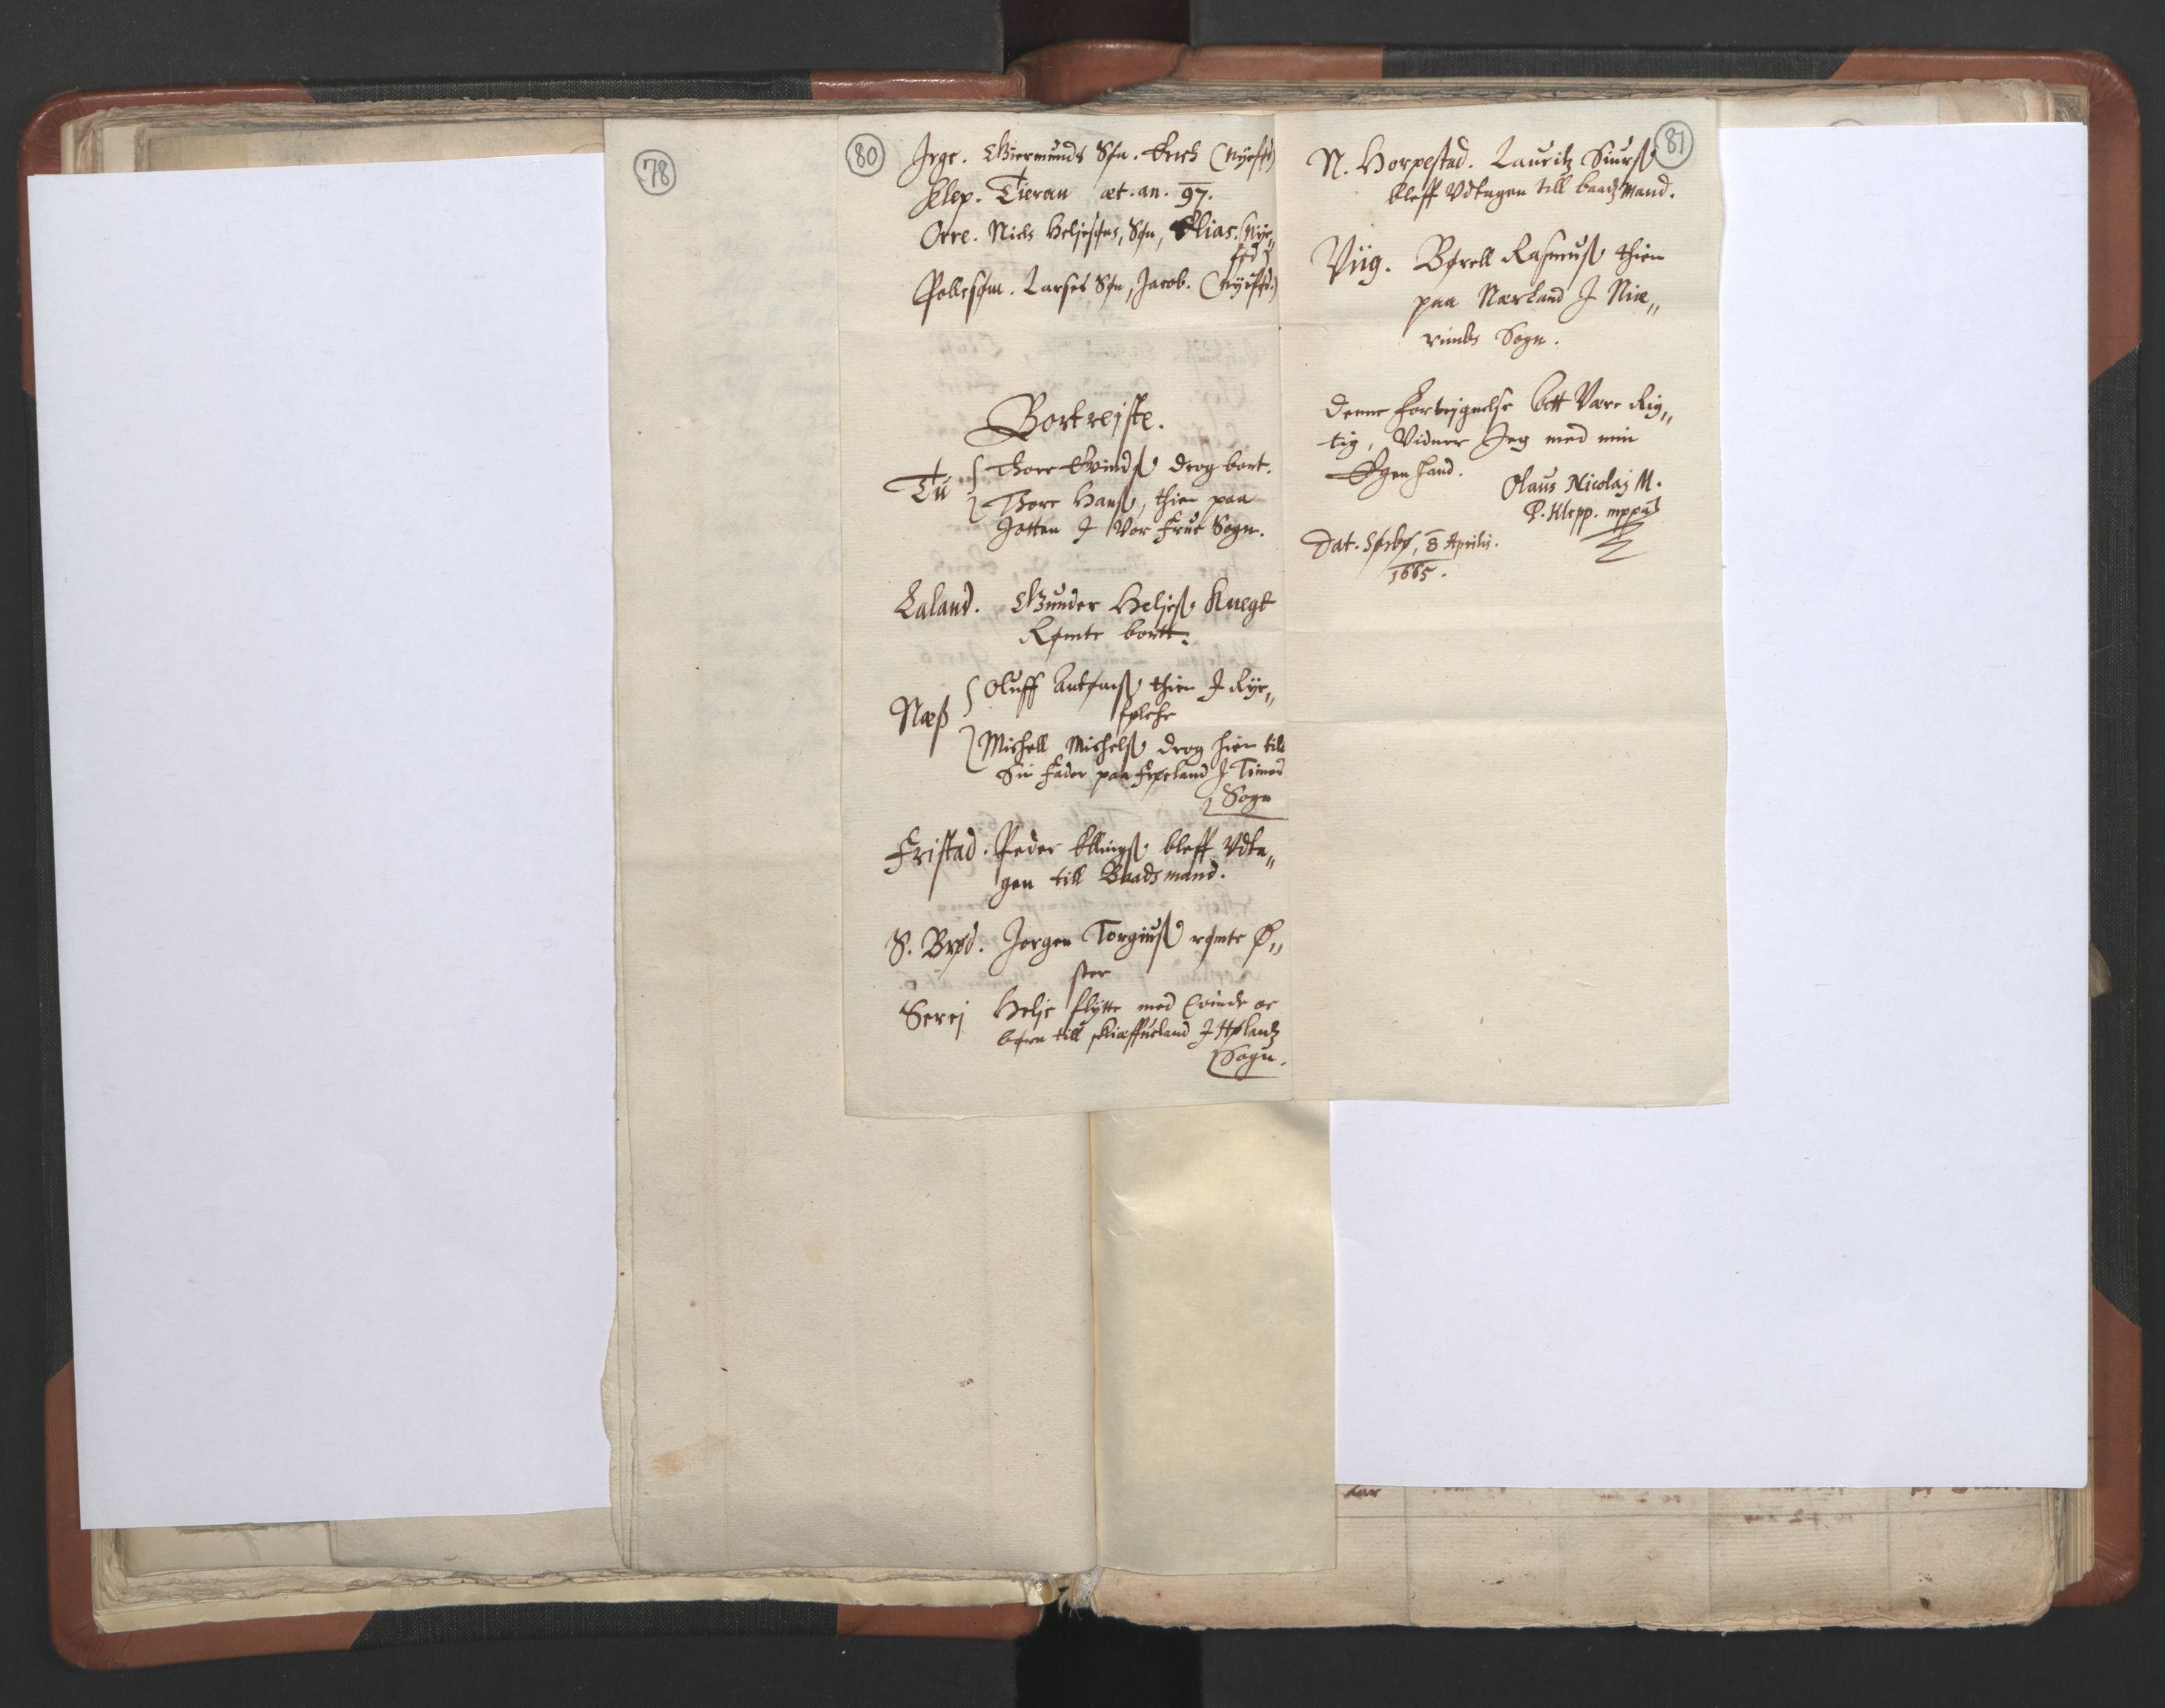 78
80
Jrge. Giermunds Søn. Erich (Nyeffd)
Klep. Tieran æt. an. 97.
Orre. Niels Heljesøns, Søn, Elias. (Nye„
fød)
Pollesøm. Larses Søn, Jacob. (Nyeffd.)
Bortrejste.
Tu Thore Evindß drog bort.
Thore Hanß, thien paa
Jotten J Vor Frue Sogn.
Laland. Gunder Heljeß Knegt
Rømte bortt.
Næß Oluff Antønß thien J Rye„
fylche
Michell Michelß drog hien till
Sin Fader paa J Timed
Sogn
Fristad. Peder Ellingß bleff Vdta„
gen till Baadsmand.
S. Brød. Jorgen Torgiusß rømte Ø„
ster
Serej Helje flytte med Qvinde oc
børn till Skieffueland J Hølandz
Sogn.
81
N. Horpestad. Lauritz Siurß
bleff Vdtagen till baadzmand.
Viig. Børell Rasmusß thien
paa Nærland J Niæ„
rimbs Sogn.
Denne Forteignelse att Være Rig„
tig, Vidner Jeg med min
Egen Hand.
Olaus Nicolaj M.
P. Klepp. mppa
Dat. Sørbø, 8 Aprilis.
1665.